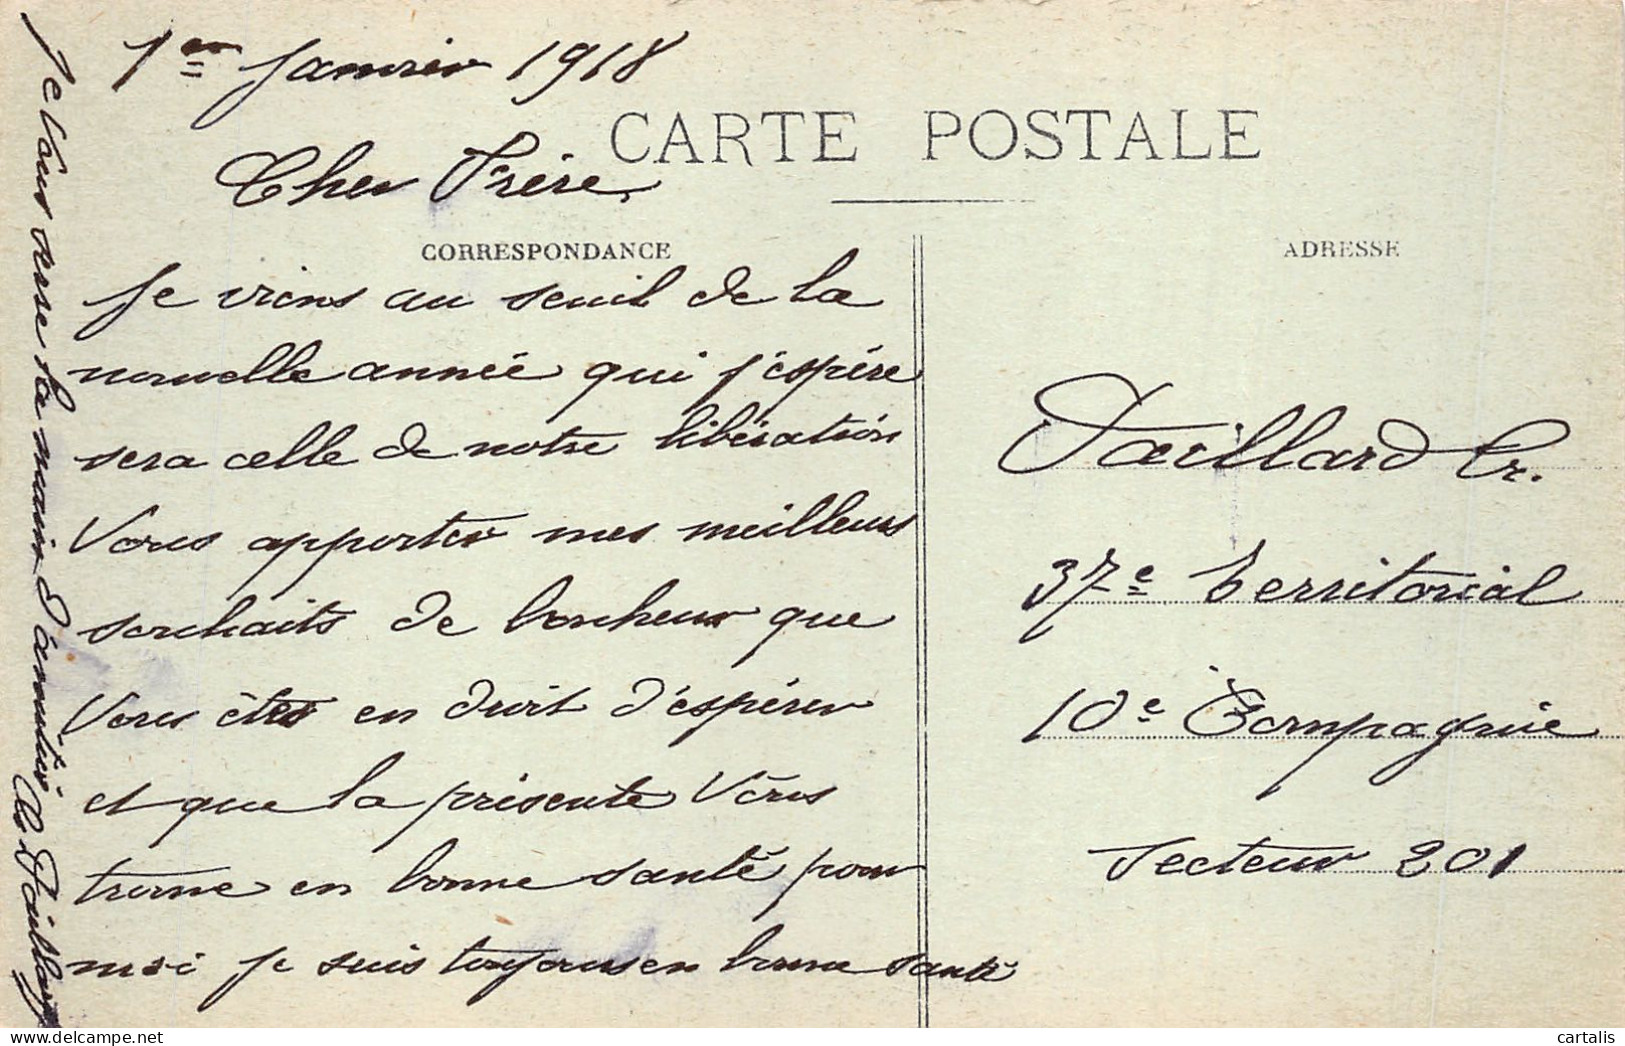 1er Janvier 1918
CARTE POSTALE
Cher Frère,
CORRESPONDANCE
ADRESSE
Je viens au seuil de la
nouvelle année qui j'espère
sera celle de notre libération
Vous apporter mes meilleurs
souhaits de bonheur que
Vous êtes en droit d'espérer
et que la présente Vous
trouve en bonne santé pour
moi je suis toujours en bonne santé
Je vous serre la main d'amitié
Taillard
Taillard Cr.
37e Territorial
10e Compagnie
Secteur 201
cartalis